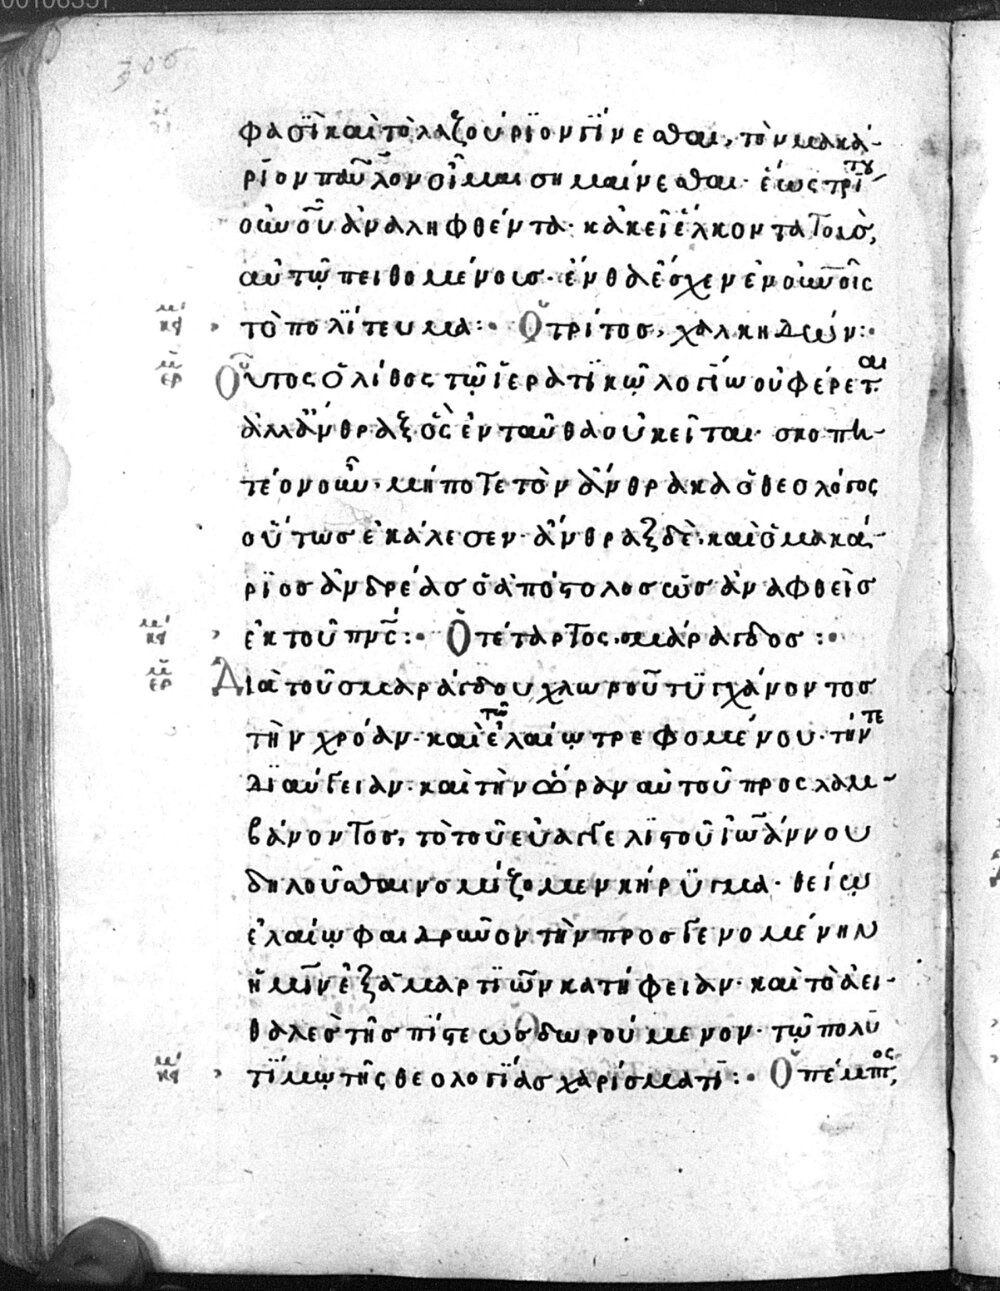 306
φασὶ καὶ τὸ λαζούριον γίνεσθαι, τὸν μακά-
ριον παῦλον οἶμαι σημαίνεσθαι· ἕως τρίτου
οὐνοῦ ἀναληφθέντα· κἀκεῖ ἕλκοντα τοὺς
αὐτῷ πειθομένους· ἔνθα ἔσχεν ἐν οὐνοῖς
κείμενον τὸ πολίτευμα:· Ὁ τρίτος, χαλκηδών:·
ἑρμ Οὗτος ὁ λίθος τῷ ἱερατικῷ λογίω οὐ φέρεται
ἀλλ' ἄνθραξ ὃς ἐνταῦθα οὐ κεῖται· σκοπη-
τέον οὖν· μήποτε τὸν ἄνθρακα ὁ θεολόγος
οὕτως ἐκάλεσεν· ἄνθραξ δὲ καὶ ὁ μακά-
ριος ἀνδρέας ὁ ἀπόστολος ὡς ἀναφθεὶς
κείμενον ἐκ τοῦ πνς:· Ὁ τέταρτος σμάραγδος:·
ἑρμ Διὰ τοῦ σμαράγδου χλωροῦ τυγχάνοντος
τὴν χρόαν· καὶ ἐλαίῳ τῶ τρεφομένου· τήν τε
διαύγειαν· καὶ τὴν ὥραν αὐτοῦ προσλαμ-
βάνοντος, τὸ τοῦ εὐαγγελιστοῦ ἰωάννου
δηλοῦσθαι νομίζομεν κήρυγμα· θείῳ
ἐλαίῳ φαιδρῦνον τὴν προσγενομένην
ἡμῖν ἐξ ἁμαρτιῶν κατήφειαν· καὶ τὸ ἀει-
θαλὲς τῆς πίστεως δωρούμενον· τῷ πολυ
κείμενον τίμῳ τῆς θεολογίας χαρίσματι:· Ὁ πέμπτος,